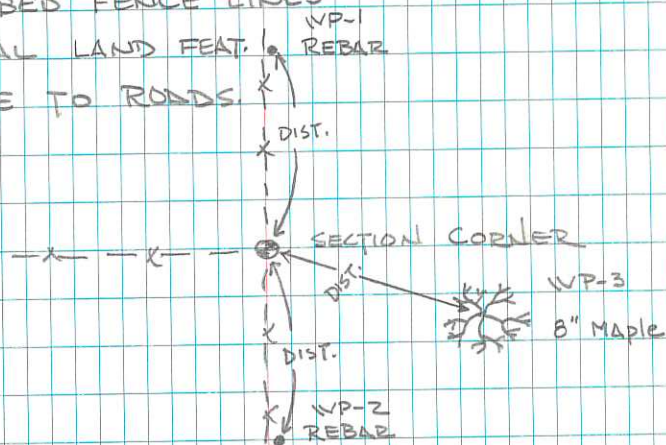 BED FENCE LINES
AL LAND FEAT.
E TO ROADS.
WP-1
REBAR
DIST.
SECTION CORNER
DIST.
WP-3
8" Maple
DIST.
WP-2
REBAR